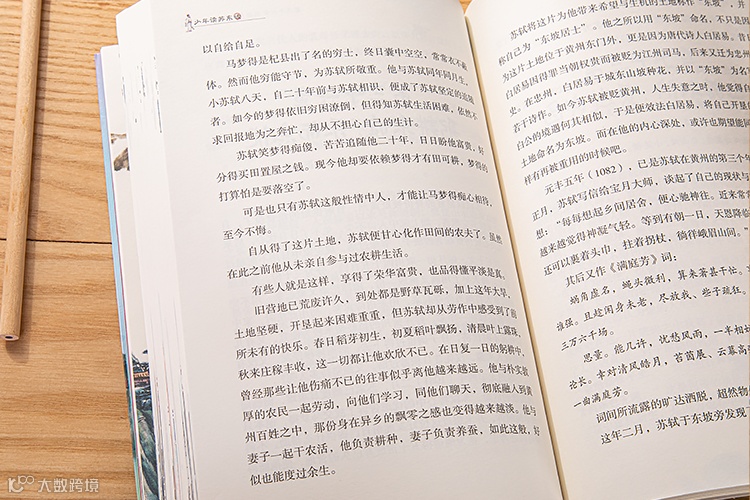 少年读苏东坡
以自给自足。
马梦得是杞县出了名的穷士，终日囊中空空，常常衣不蔽
体。然而他穷能守节，为苏轼所敬重。他与苏轼同年同月生，
小苏轼八天，自二十年前与苏轼相识，便成了苏轼坚定的追随
者。如今的梦得依旧穷困潦倒，但得知苏轼生活困难，依然不
求回报地为之奔忙，却从不担心自己的生计。
苏轼笑梦得痴傻，苦苦追随他二十年，日日盼他富贵，好
分得买田置屋之钱。现今他却要依赖梦得才有田可耕，梦得的
打算怕是要落空了。
可是也只有苏轼这般性情中人，才能让马梦得痴心相待，
至今不悔。
自从得了这片土地，苏轼便甘心化作田间的农夫了。虽然
在此之前他从未亲自参与过农耕生活。
有些人就是这样，享得了荣华富贵，也品得懂平淡是真。
旧营地已荒废许久，到处都是野草瓦砾，加上这年大旱，
土地坚硬，开垦起来困难重重，但苏轼却从劳作中感受到了前
所未有的快乐。春日稻芽初生，初夏稻叶飘扬，清晨叶上露珠，
秋来庄稼丰收，这一切都让他欢欣不已。在日复一日的躬耕中，
曾经那些让他伤痛不已的往事似乎离他越来越远。他与朴实敦
厚的农民一起劳动，向他们学习，同他们聊天，彻底融入到黄
州百姓之中，那份身在异乡的飘零之感也变得越来越淡。他与
妻子一起干农活，他负责耕种，妻子负责养蚕，如此这般，好
似也能度过余生。
苏轼将这片为他带来希望与生机的土地称作“东坡”，并
称自己为“东坡居士”。他之所以用“东坡”命名，不只是因
为这片土地位于黄州东门外，更是因为唐代诗人白居易。
白居易因得罪当朝权贵而被贬为江州司马，后来又迁为忠州
史。在忠州，白居易于城东山坡种花，并以“东坡”为名
若干诗作。如今苏轼被贬黄州，人生失意之时，他觉得自
白公的境遇何其相似，于是便效法白居易，将自己开垦
土地命名为东坡。而在他的内心深处，或许也期望能同
样有再被重用的时候吧。
元丰五年（1082），已是苏轼在黄州的第三个年
正月，苏轼写信给宝月大师，谈起了自己的现状与
想：“每每想起乡间居舍，便心驰神往。近来常
越来越觉得神凝气轻。等到有朝一日，天恩降临
还可以裹着头巾，拄着拐杖，徜徉峨眉山间。”
其后又作《满庭芳》词：
蜗角虚名，蝇头微利，算来著甚干忙。
谁强。且趁闲身未老，尽放我、些子疏狂。
三万六千场。
思量。能几许，忧愁风雨，一年相妨
论长。幸对清风皓月，苔茵展、云幕高
一曲满庭芳。
词间所流露的旷达洒脱，超然物
这年二月，苏轼于东坡旁发现
大数跨境